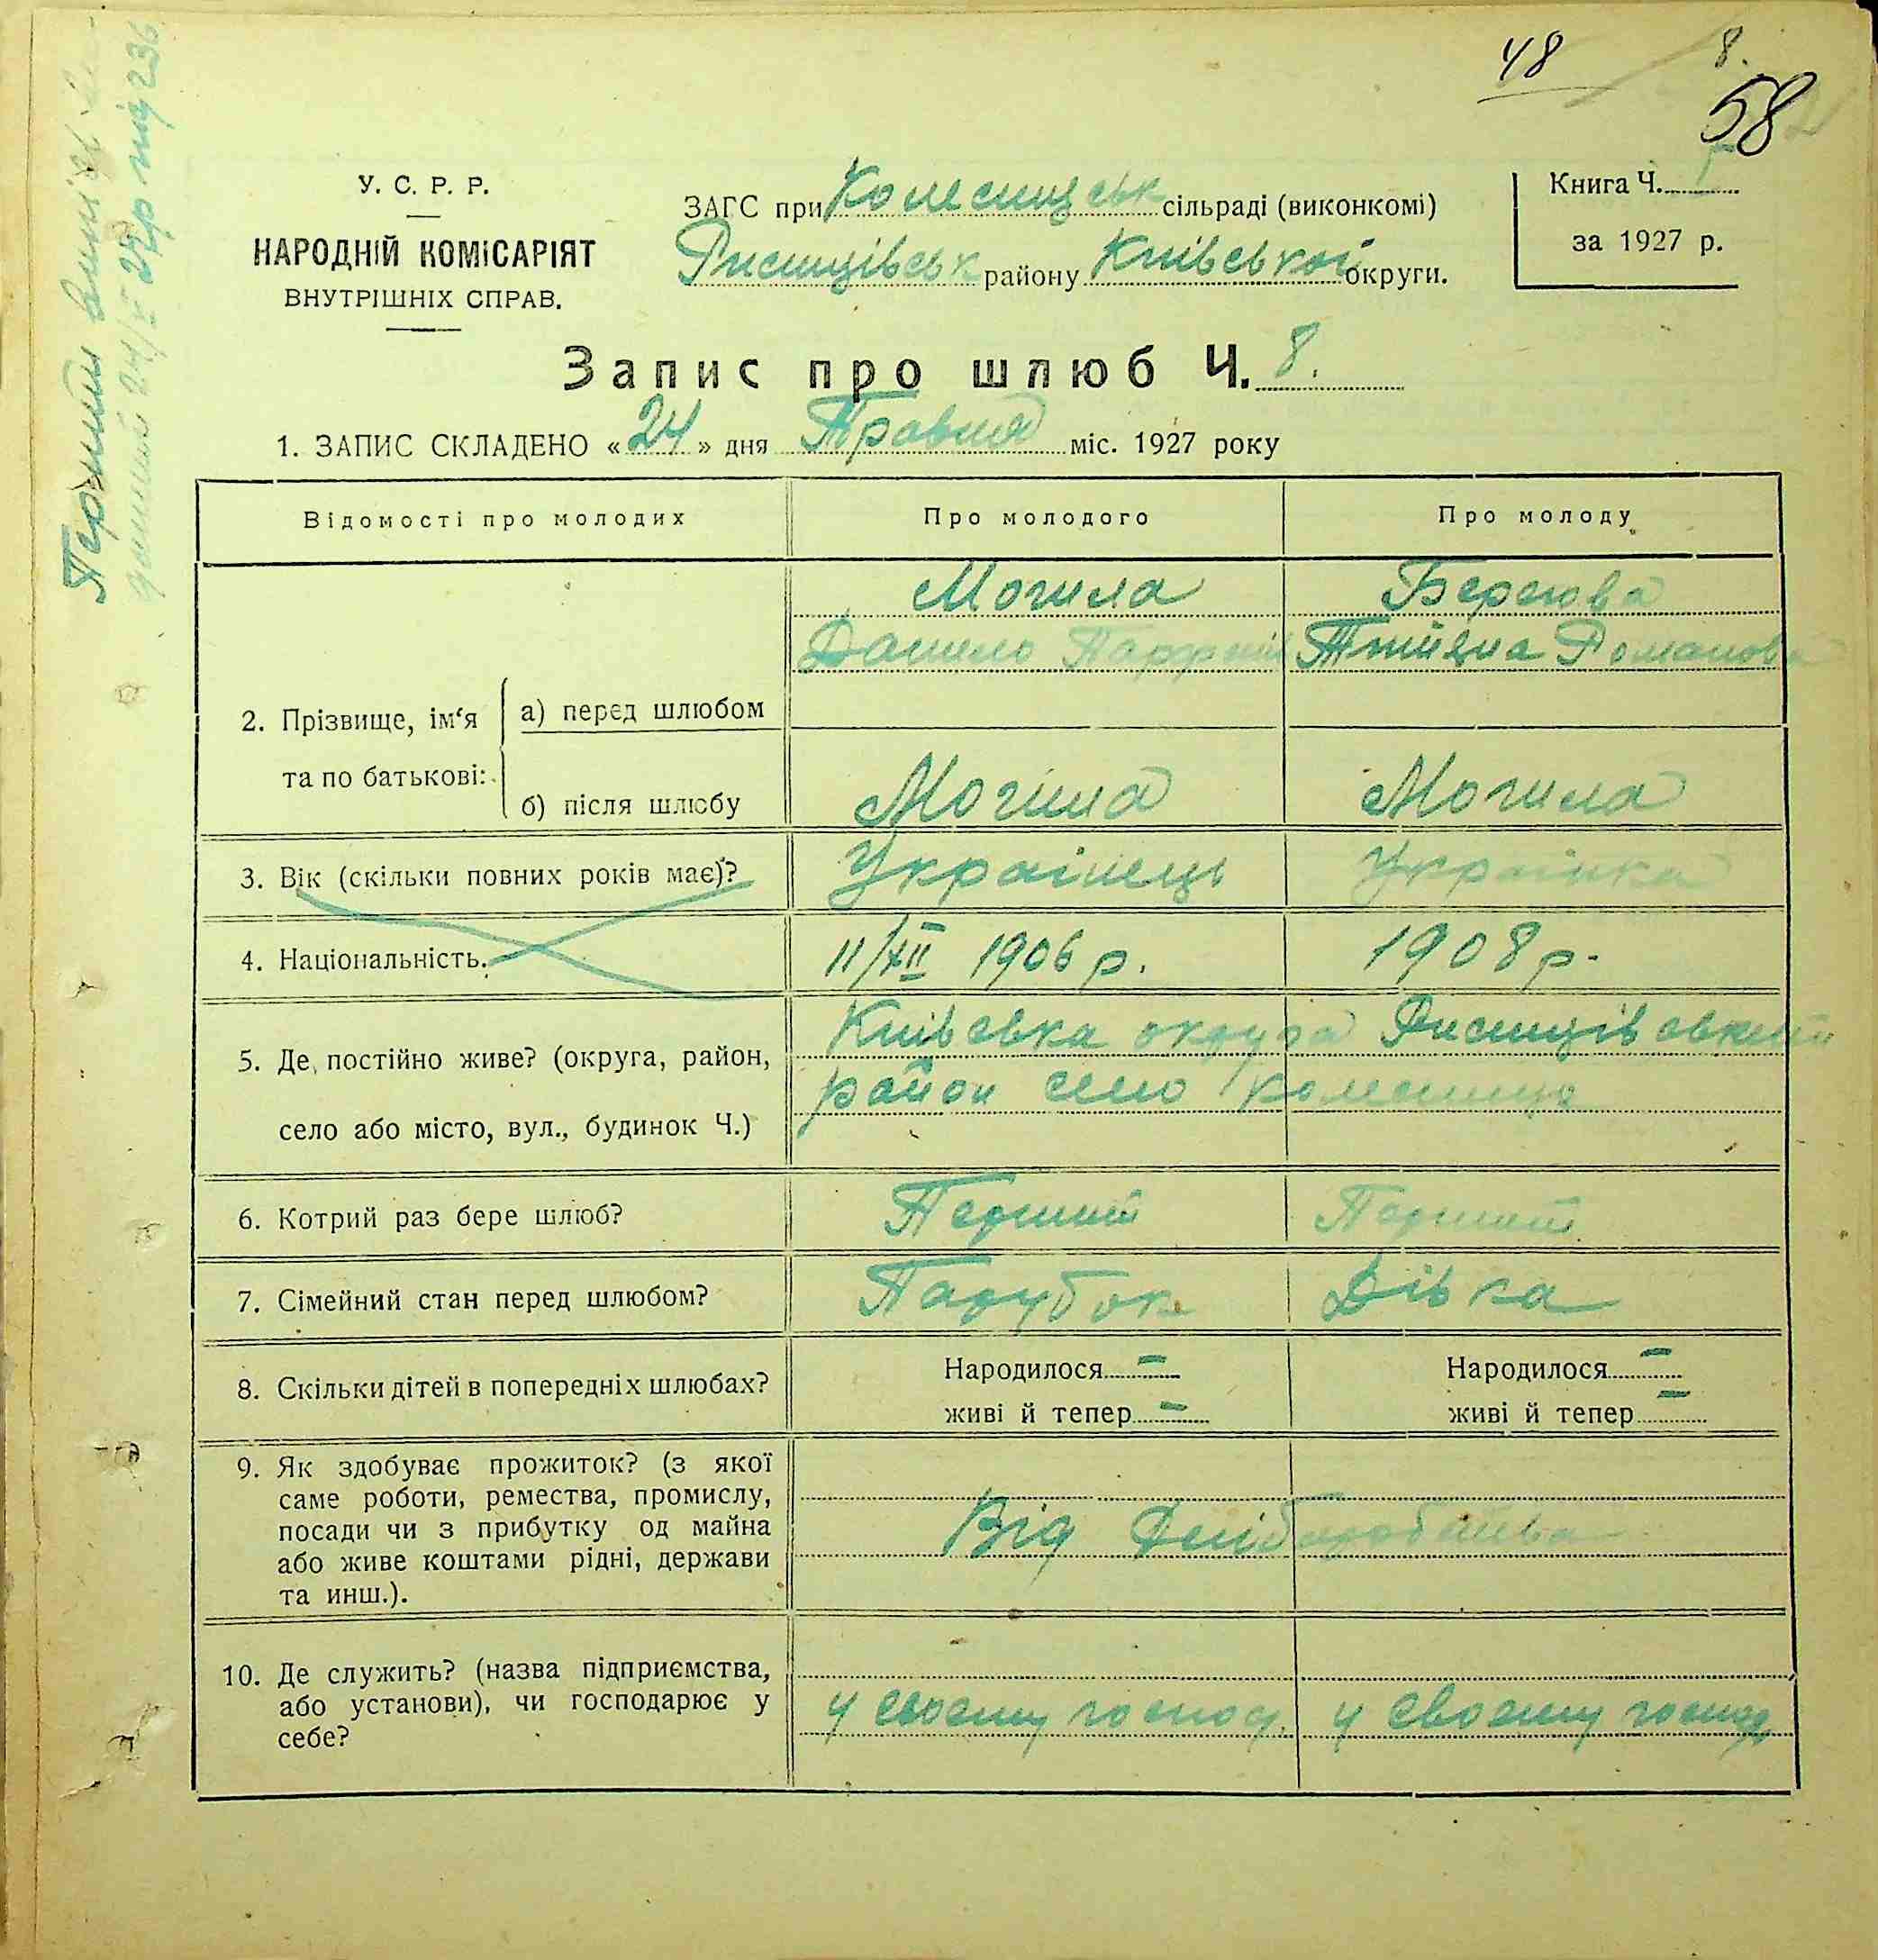 48
8.
58
У. С. Р. Р.
НАРОДНІЙ КОМІСАРІЯТ
ВНУТРІШНІХ СПРАВ.
ЗАГС при Колесищськ сільраді (виконкомі)
Рисищівськ району Київської округи.
Книга Ч.
за 1927 р.
Запис про шлюб Ч. 8.
1. ЗАПИС СКЛАДЕНО «24» дня Травня міс. 1927 року
Відомості про молодих Про молодого Про молоду
Могила Берегова
Данило Романов
2. Прізвище, ім‘я та по батькові:
а) перед шлюбом
б) після шлюбу Могила Могила
3. Вік (скільки повних років має)? Українець Українка
4. Національність. 11/XII 1906 р. 1908 р.
5. Де постійно живе? (округа, район, Київська округа Рисищівський
село або місто, вул., будинок Ч.) район село
6. Котрий раз бере шлюб? Перший Перший
7. Сімейний стан перед шлюбом? Парубок Дівка
8. Скільки дітей в попередніх шлюбах? Народилося — Народилося —
живі й тепер — живі й тепер —
9. Як здобуває прожиток? (з якої
саме роботи, ремества, промислу,
посади чи з прибутку од майна
або живе коштами рідні, держави
та инш.).
Від
10. Де служить? (назва підприємства,
або установи), чи господарює у
себе?
у своєму господ. у своєму господ
Перший
24/V 27р під 236